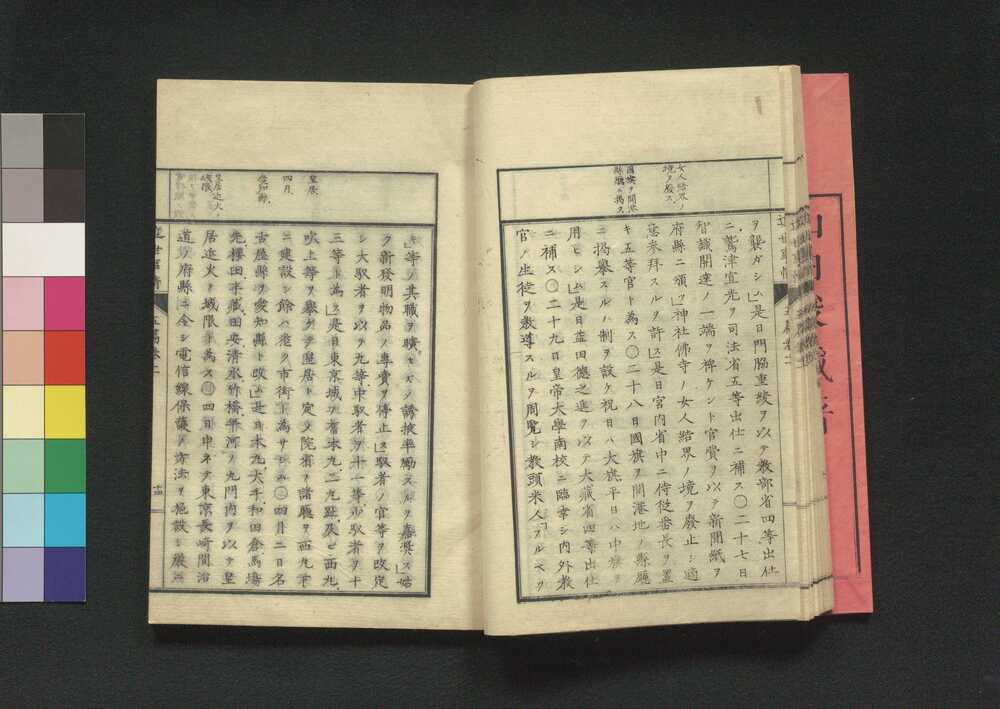 女人結界ノ
境ヲ廃ス
國旗ヲ開港
縣廳ニ掲ス
ヲ襲ガシム是日門脇重綾ヲ以テ教部省四等出仕
ニ鷲津宣光ヲ司法省五等出仕ニ補ス〇二十七日
智識開達ノ一端ヲ裨ケント官費ヲ以テ新聞紙ヲ
府縣ニ頒ツ神社佛寺ノ女人結界ノ境ヲ廢止シ適
意参拜スルヲ許ス是日宮内省中ニ侍従番長ヲ置
キ五等官ト為ス〇二十八日國旗ヲ開港地ノ縣廳
ニ掲擧スルノ制ヲ設ケ祝日ハ大旗平日ハ中旗ヲ
用ヒシム是日孟田德之進ヲ以テ大藏省四等出仕
ニ補ス〇二十九日皇帝大學南校ニ臨幸シ内外教
官ノ生徒ヲ教導スルヲ周覧シ教頭米人フルベッ
皇居
四月
愛知縣
皇居近火ノ
城限
等ノ其職ヲ曠セズノ誘掖平勵スルヲ嘉奬ス始
ク新發明物品ノ專賣ヲ停止ス馭者ノ官等ヲ改定
シ大馭者ヲ以テ九等中馭者ヲ十一等少馭者ヲ十
三等ト為ス是日東京城ヲ舊本九二九趾及ビ西九
吹上等ヲ擧ゲテ皇居ト定メ院省ノ諸廳ヲ西九下
ニ建設シ餘ハ盡ク市街ト為サシム〇四月二日名
古屋縣ヲ愛知縣ト改ム是日本九大手和田倉馬場
先櫻田半藏田安清水竹橋平河ノ九門内ヲ以テ皇
居近火ノ城限ト為ス〇四日甲子ヲ東京長崎間沿
道ノ府縣ニ令シ電信線保護ノ方法ヲ施設シ嚴
近世事情
五篇巻二
十四